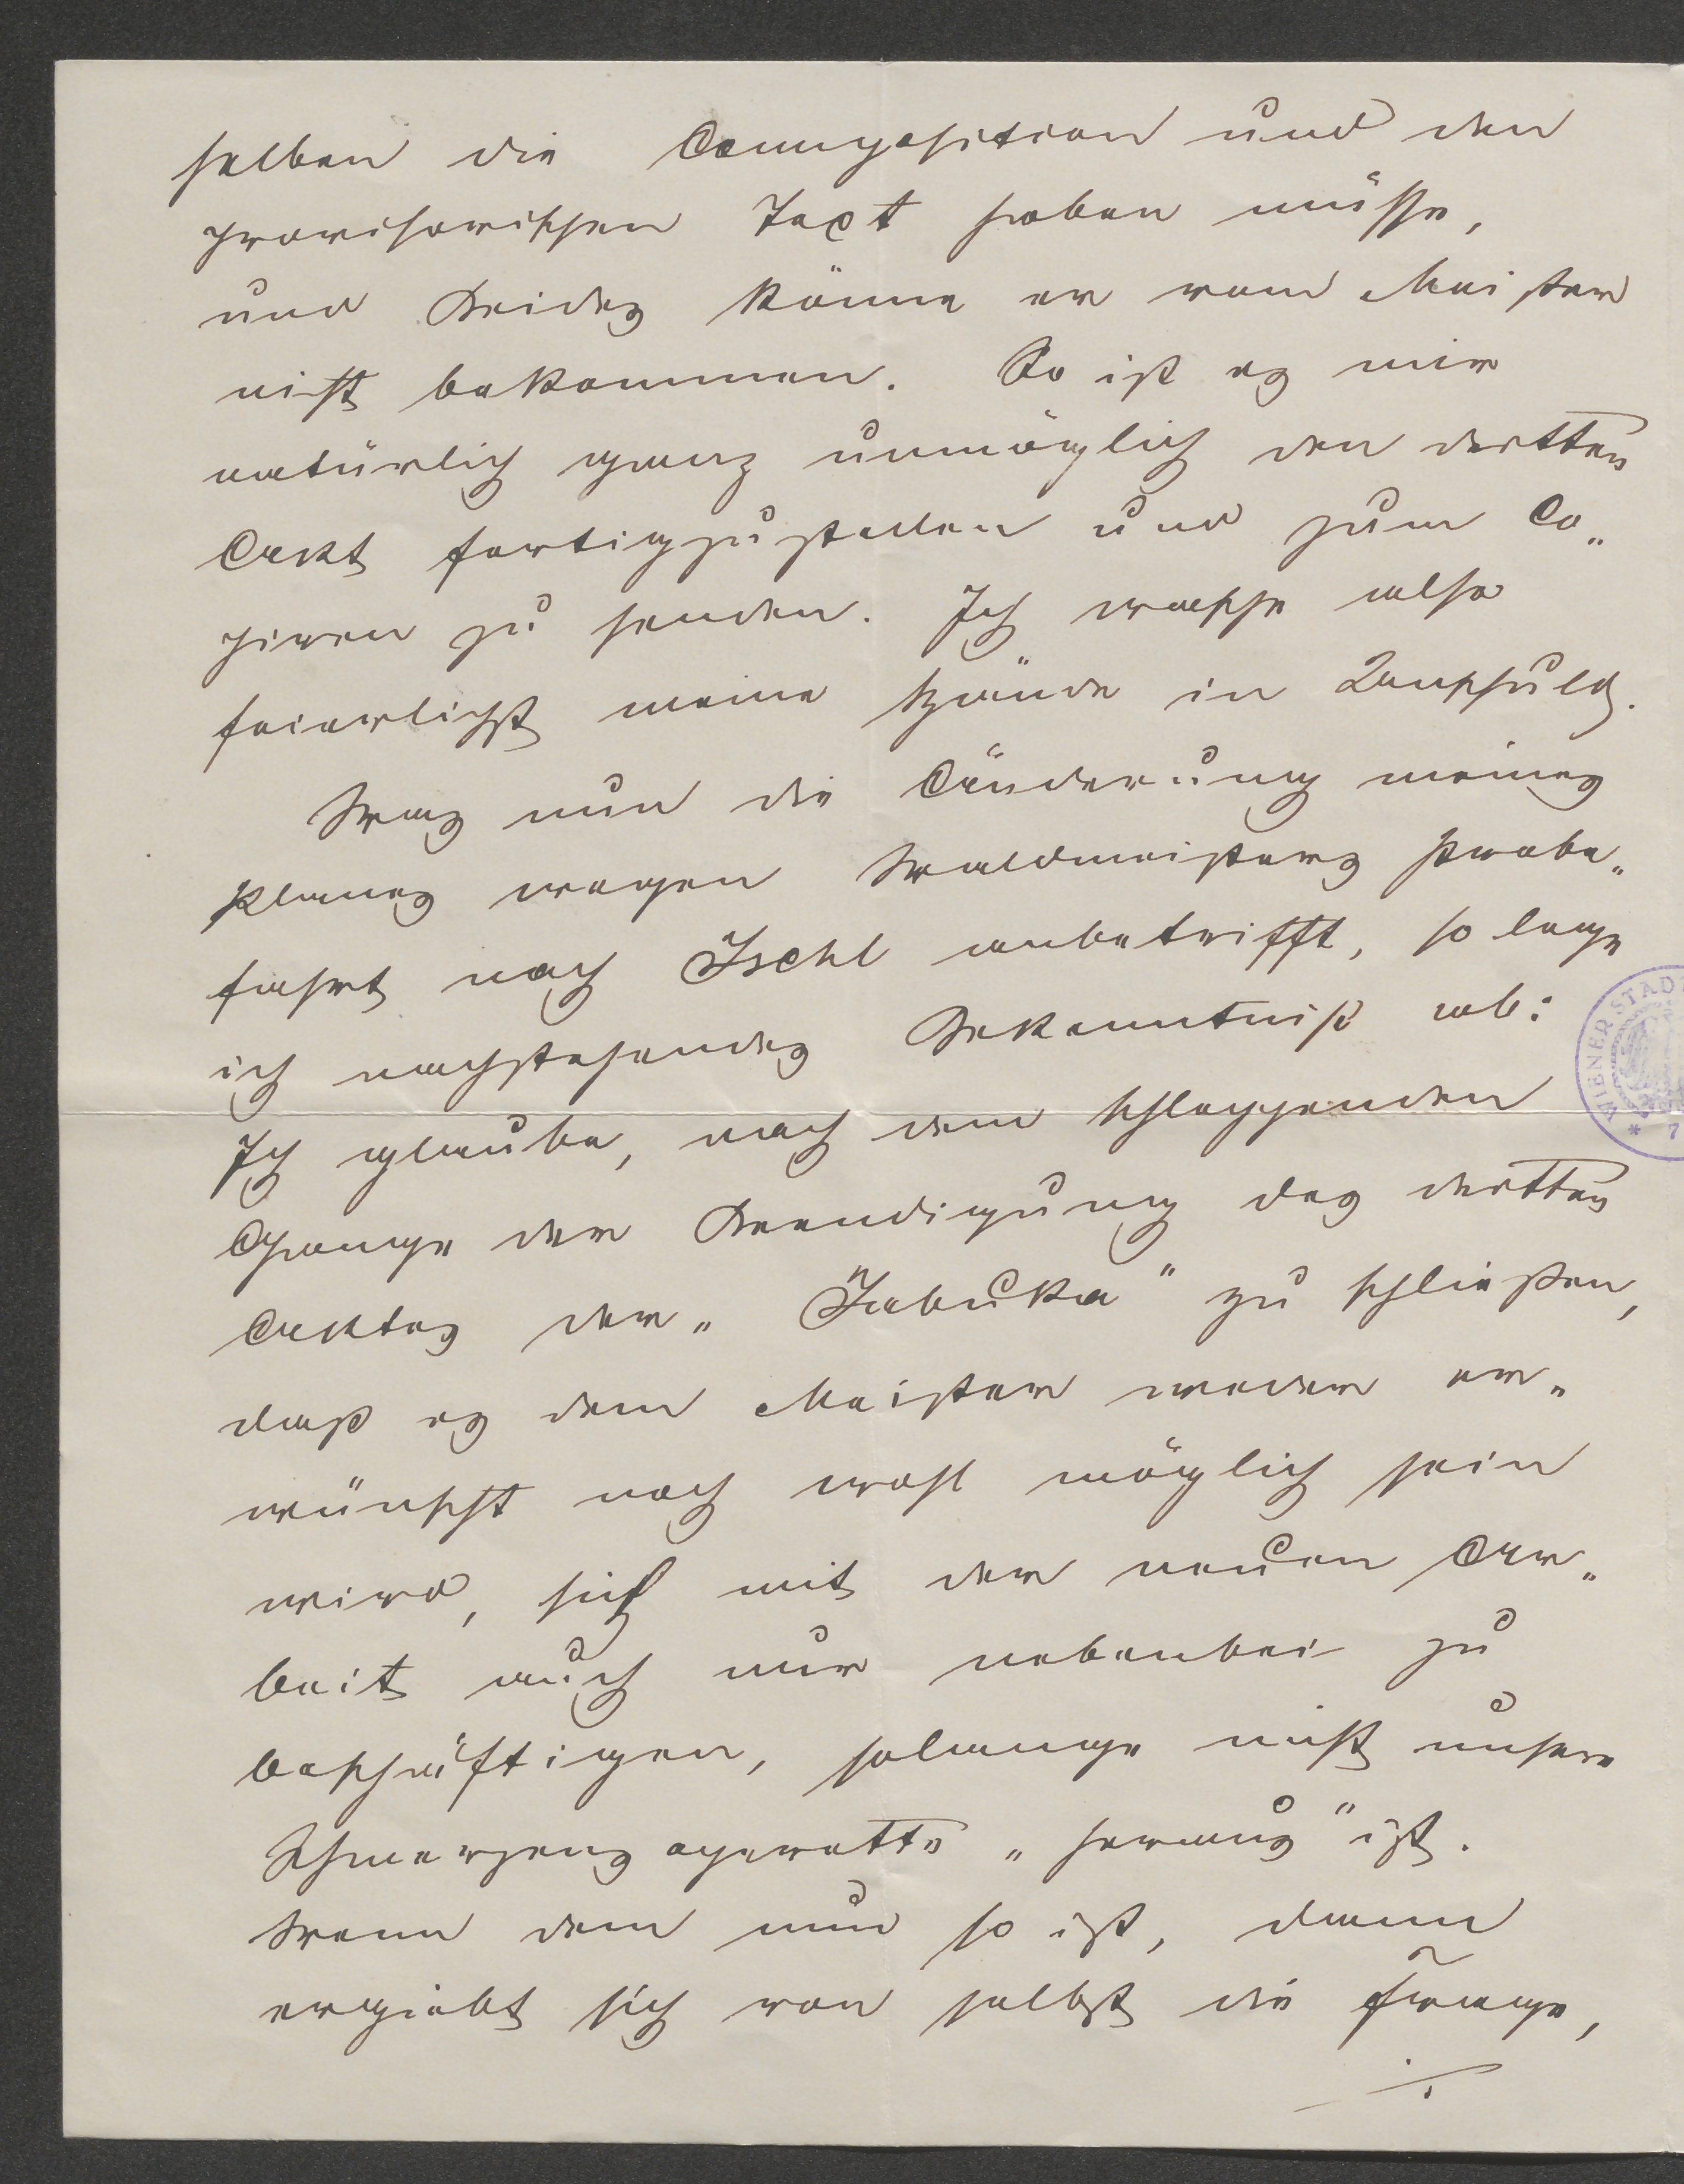 selben die Composition und den
provisorischen Text haben müsse,
und Beides könne er vom Meister
nicht bekommen. So ist es mir
natürlich ganz unmöglich den dritten
Akt fertigzustellen und zum Co„
piren zu senden. Ich wasche also
feierlichst meine Hände in Unschuld.
Was nun die Änderung meines
Planes wegen Waldmeisters Probe„
fahrt nach Ischl anbetrifft, so lege
ich nachstehendes Bekenntniß ab:
Ich glaube, nach dem schleppenden
Gange der Beendigung des dritten
Aktes der „Jabuka" zu schließen,
daß es dem Meister weder er„
wünscht noch wohl möglich sein
wird, sich mit der neuen Ar„
beit auch nur nebenbei zu
beschäftigen, solange nicht unsere
Schmerzensoperette „heraus" ist.
Wenn dem nun so ist, dann
ergiebt sich von selbst die Frage,
./.
WIENER STAD
* 7